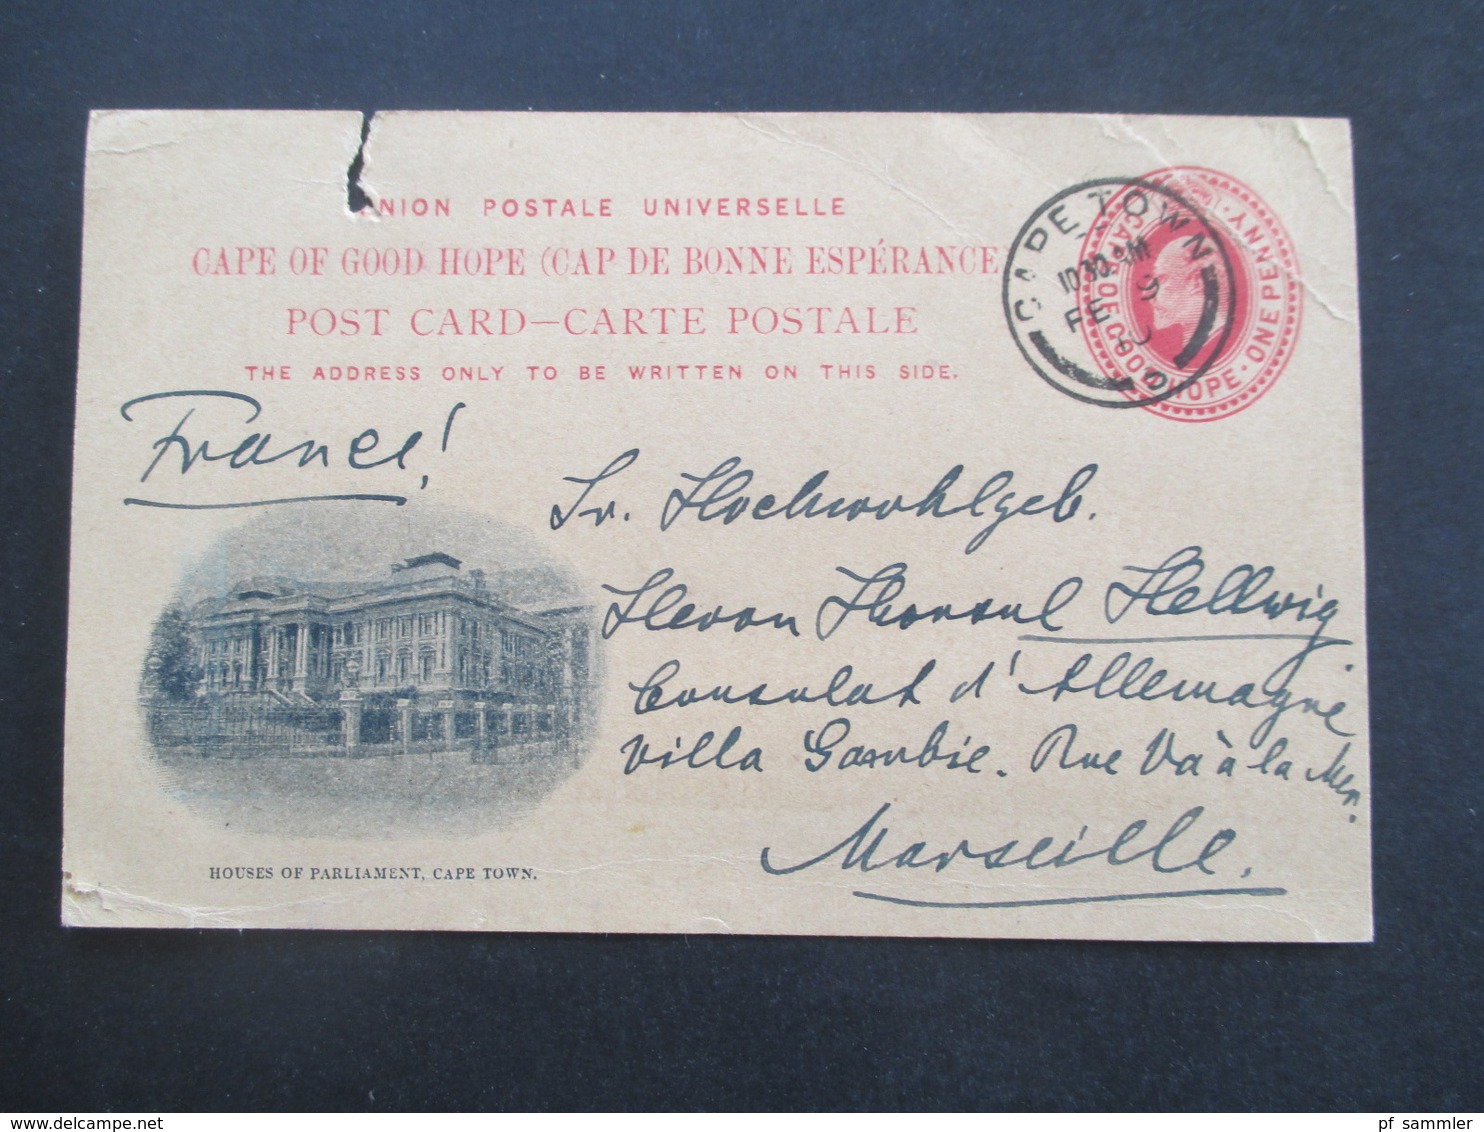 UNION POSTALE UNIVERSELLE
CAPE OF GOOD HOPE (CAP DE BONNE ESPÉRANCE)
POST CARD—CARTE POSTALE
THE ADDRESS ONLY TO BE WRITTEN ON THIS SIDE.
CAPE TOWN
10 30 AM
FE 9
CAPE OF GOOD HOPE · ONE PENNY
France!
Sr. Hochwohlgeb.
Herrn Konsul Hellwig
Consulat d'Allemagne
Villa Gambie. Rue Va à la Mer.
Marseille.
HOUSES OF PARLIAMENT, CAPE TOWN.
www.delcampe.net
pf_sammler